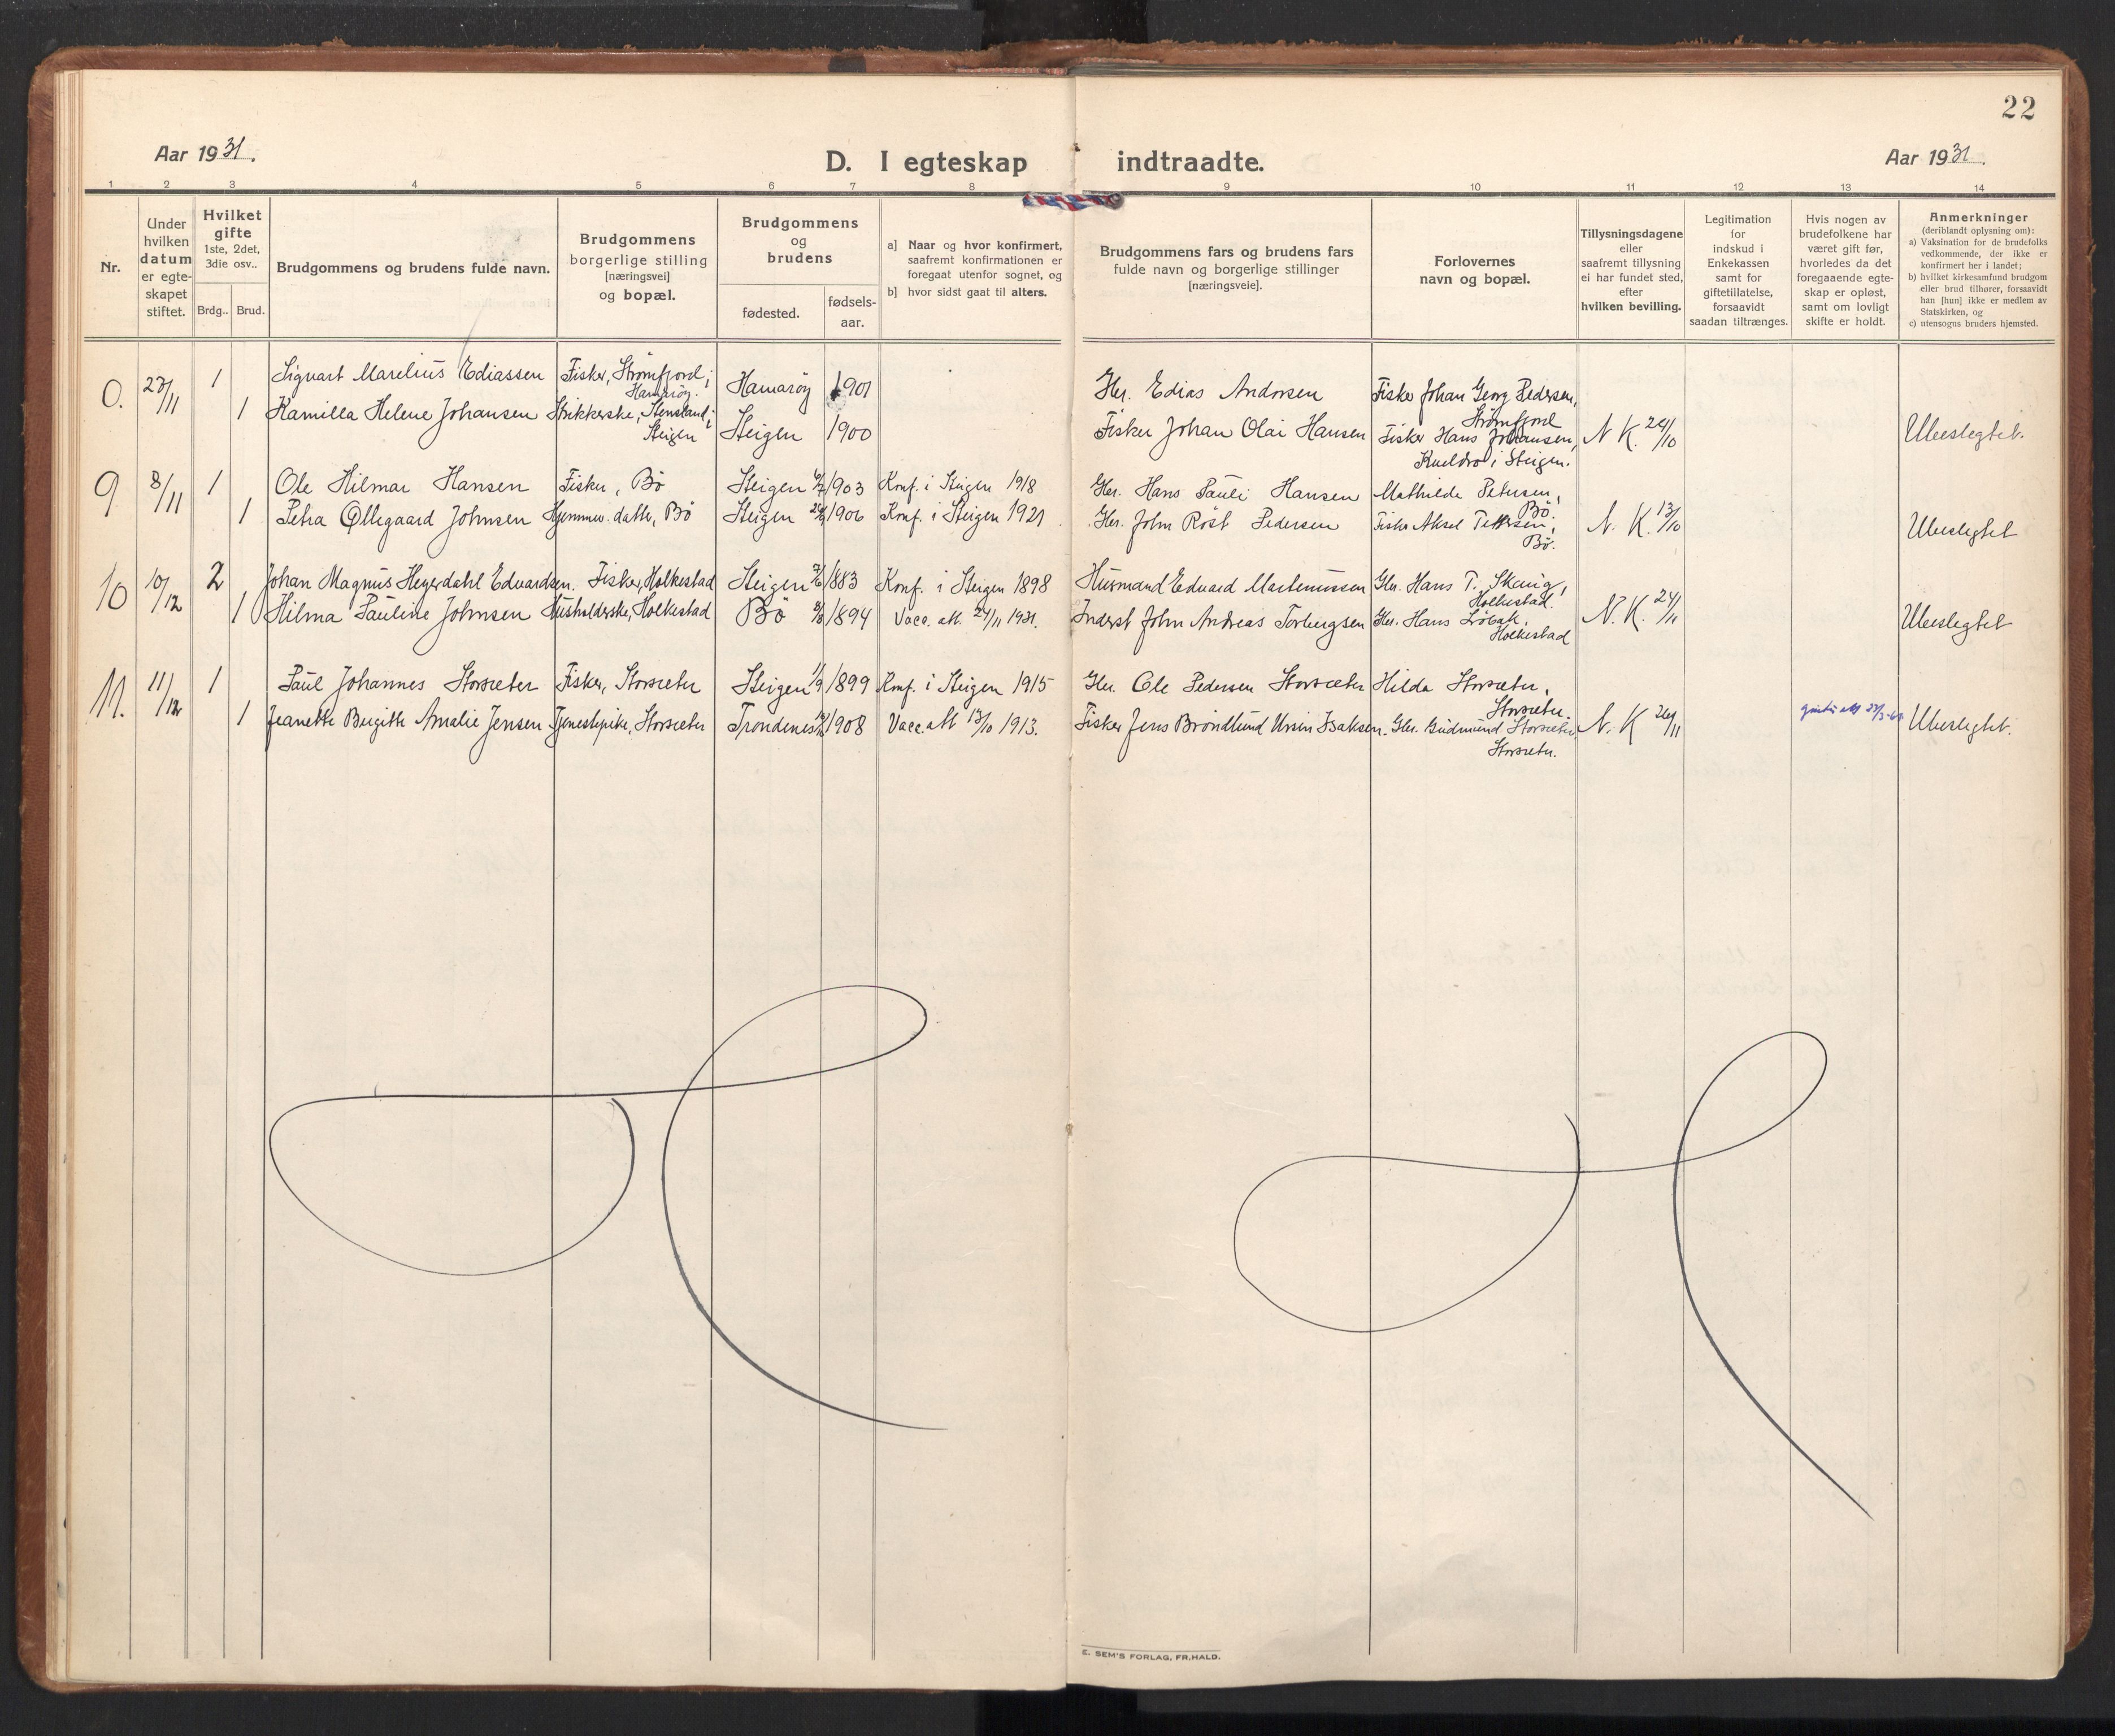 22
Aar 1931.
D. I egteskap indtraadte.
Aar 1931.
1 2 3 4 5 6 7 8 9 10 11 12 13 14
Nr.
Under
hvilken
datum
er egte-
skapet
stiftet.
Hvilket
gifte
1ste, 2det,
3die osv..
Brdg.. Brud.
Brudgommens og brudens fulde navn.
Brudgommens
borgerlige stilling
[næringsvei]
og bopæl.
Brudgommens
og
brudens
fødested.
fødsels-
aar.
a] Naar og hvor konfirmert,
saafremt konfirmationen er
foregaat utenfor sognet, og
b] hvor sidst gaat til alters.
Brudgommens fars og brudens fars
fulde navn og borgerlige stillinger
[næringsveie].
Forlovernes
navn og bopæl.
Tillysningsdagene
eller
saafremt tillysning
ei har fundet sted,
efter
hvilken bevilling.
Legitimation
for
indskud i
Enkekassen
samt for
giftetillatelse,
forsaavidt
saadan tiltrænges.
Hvis nogen av
brudefolkene har
været gift før,
hvorledes da det
foregaaende egte-
skap er opløst,
samt om lovligt
skifte er holdt.
Anmerkninger
(deriblandt oplysning om):
a) Vaksination for de brudefolks
vedkommende, der ikke er
konfirmert her i landet;
b) hvilket kirkesamfund brudgom
eller brud tilhører, forsaavidt
han [hun] ikke er medlem av
Statskirken, og
c) utensogns bruders hjemsted.
0. 23/11 1 Sigvart Marelius Ediassen Fisker, Strømfjord, Hamarøy. Hamarøy 1901 Gbr. Edias Andorsen Fisker Johan Georg Pedersen, Strømfjord
1 Kamilla Helene Johansen Strikkerske, Stensland, Steigen Steigen 1900 Fisker Johan Olai Hansen Fisker Hans Johansen, i Steigen. N. K. 24/10 Ubeslegtet.
9 8/11 1 Ole Hilmar Hansen Fisker, Bø Steigen 1903 Konf. i Steigen 1918 Gbr. Hans Pauli Hansen Mathilde Petersen, Bø.
1 Petra Øllegaard Johnsen Hjemmev. datter, Bø Steigen 1906 Konf. i Steigen 1921 Gbr. John Røst Pedersen Fisker Aksel Pettersen, Bø. N. K. 13/10 Ubeslegtet
10 10/12 2 Johan Magnus Heyerdahl Edvardsen Fisker, Holkestad Steigen 1883 Konf. i Steigen 1898 Husmand Edvard Martinussen Gbr. Hans T. Skaug, Holkestad.
1 Hilma Pauline Johnsen Husholderske, Holkestad Bø 1894 Vacc. att. 24/11 1931. Inderst John Andreas Torbergsen Gbr. Hans Løbak, Holkestad N. K. 24/11 Ubeslegtet
11. 11/12 1 Paul Johannes Storsæter Fisker, Storsæter Steigen 1899 Konf. i Steigen 1915 Gbr. Ole Pedersen Storsæter Hilda Storsæter, Storsæter.
1 Jeanette Bergitte Amalie Jensen Tjenestepike, Storsæter Trondenes 1908 Vacc. att 13/10 1913. Fisker Jens Brøndlund Ursin Isaksen. Gbr. Gudmund Storsæter, Storsæter. N. K 26/11 Ubeslegtet.
E. SEM'S FORLAG, FR.HALD.